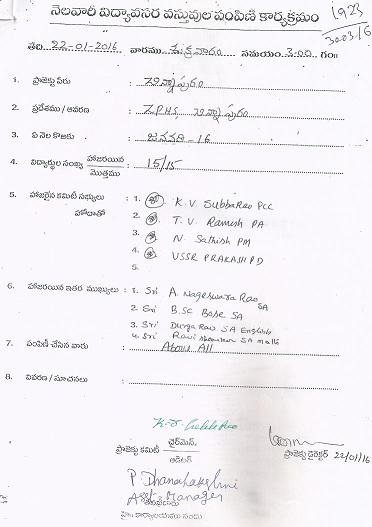 నెలవారీ విద్యావసర వస్తువుల పంపిణీ కార్యక్రమం
1923
30.03.16
తేది 22-01-2016 వారము శుక్రవారం సమయం 3.00 గం॥
1. ప్రాజెక్టు పేరు : చిన్నాపురం
2. ప్రదేశము / ఆవరణ : Z.P.H.S, చిన్నాపురం
3. ఏ నెల కొఱకు : జనవరి-16
4. విద్యార్థుల సంఖ్య హాజరయిన / మొత్తము : 15/15
5. హాజరైన కమిటీ సభ్యులు : 1. K.V. SubbaRao PCC
హోదాతో 2. T.V. Ramesh PA
3. N. Sathish PM
4. VSSR PRAKASH PD
5.
6. హాజరయిన ఇతర ముఖ్యులు : 1. Sri A. Nageswara Rao SA
2. Sri B.SC Bose SA
3. Sri Durga Rao SA English
4. Sri Ravi Shankar SA maths
7. పంపిణీ చేసిన వారు : Above All
8. వివరణ / సూచనలు :
ప్రాజెక్టు కమిటీ ఛైర్మెన్
ఆడిటర్
ప్రాజెక్టు డైరెక్టర్ 22/01/16
P. Dhanalakshmi
Asst Manager